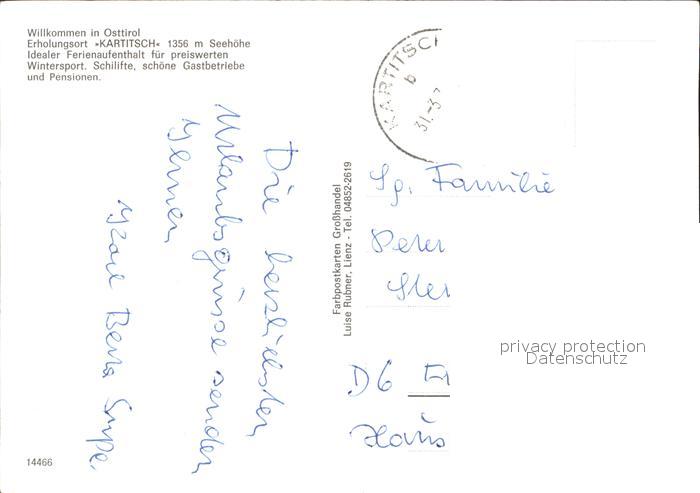 Willkommen in Osttirol
Erholungsort »KARTITSCH« 1356 m Seehöhe
Idealer Ferienaufenthalt für preiswerten
Wintersport. Schilifte, schöne Gastbetriebe
und Pensionen.
KARTITSCH
b
31.-3.
Die herzlichsten
Urlaubsgrüsse senden
Ihnen
Farbpostkarten Großhandel
Luise Rubner, Lienz - Tel. 04852-2619
Sg. Familie
Peter
D6
Haus
privacy protection
Datenschutz
14466